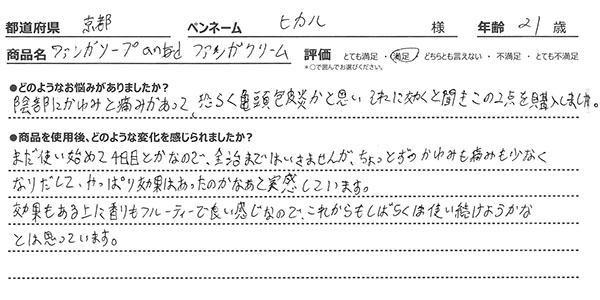 都道府県 京都 ペンネーム ヒカル 様 年齢 21 歳
商品名 ファンガソープand ファンガクリーム 評価 とても満足・満足・どちらとも言えない・不満足・とても不満足
*○で囲んでお選びください。
●どのようなお悩みがありましたか?
陰部にかゆみと痛みがあって、恐らく亀頭包皮炎かと思い それに効くと聞きこの2点を購入しました。
●商品を使用後、どのような変化を感じられましたか?
まだ使い始めて4日目とかなので、全治まではいきませんが、ちょっとずつかゆみも痛みも少なく
なりだして、やっぱり効果はあったのかなあと実感しています。
効果もある上に香りもフルーティーで良い感じなので、これからもしばらくは使い続けようかな
とは思っています。